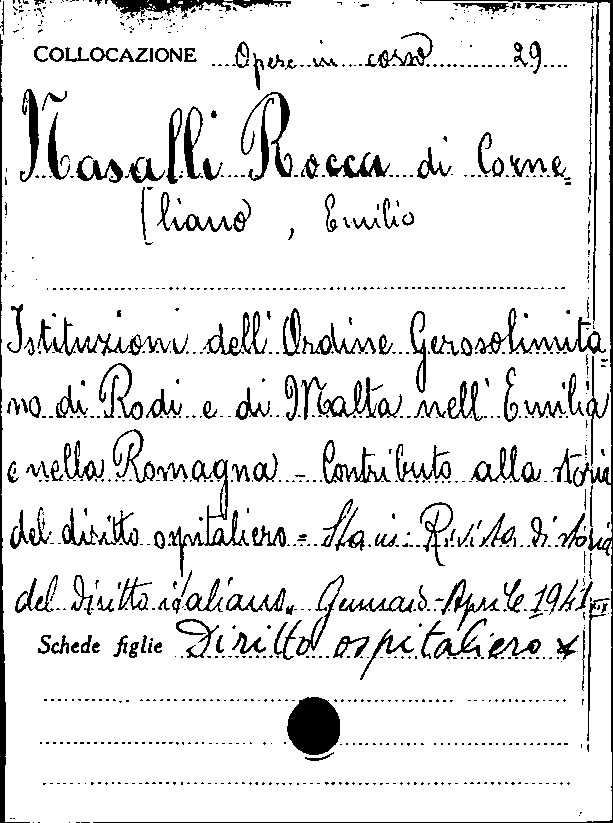 COLLOCAZIONE Opere in corso 29
Nasalli Rocca di Corne=
liano, Emilio
Istituzioni dell'Ordine Gerosolimita=
no di Rodi e di Malta nell'Emilia
e nella Romagna - Contributo alla storia
del diritto ospitaliero = Rivista di storia
del diritto italiano" Gennaio-Aprile 1941
Schede figlie Diritto ospitaliero x